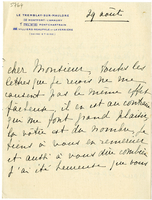 LE TREMBLAY-SUR-MAULDRE
29 août
cher Monsieur, toutes les
lettres que je reçois ne me
causent pas le même effet
fâcheux, il en est au contraire
qui me font grand plaisir,
la vôtre est du nombre. Je
viens à vous en remercier
et aussi à vous dire combien
j'ai été heureuse, que vous